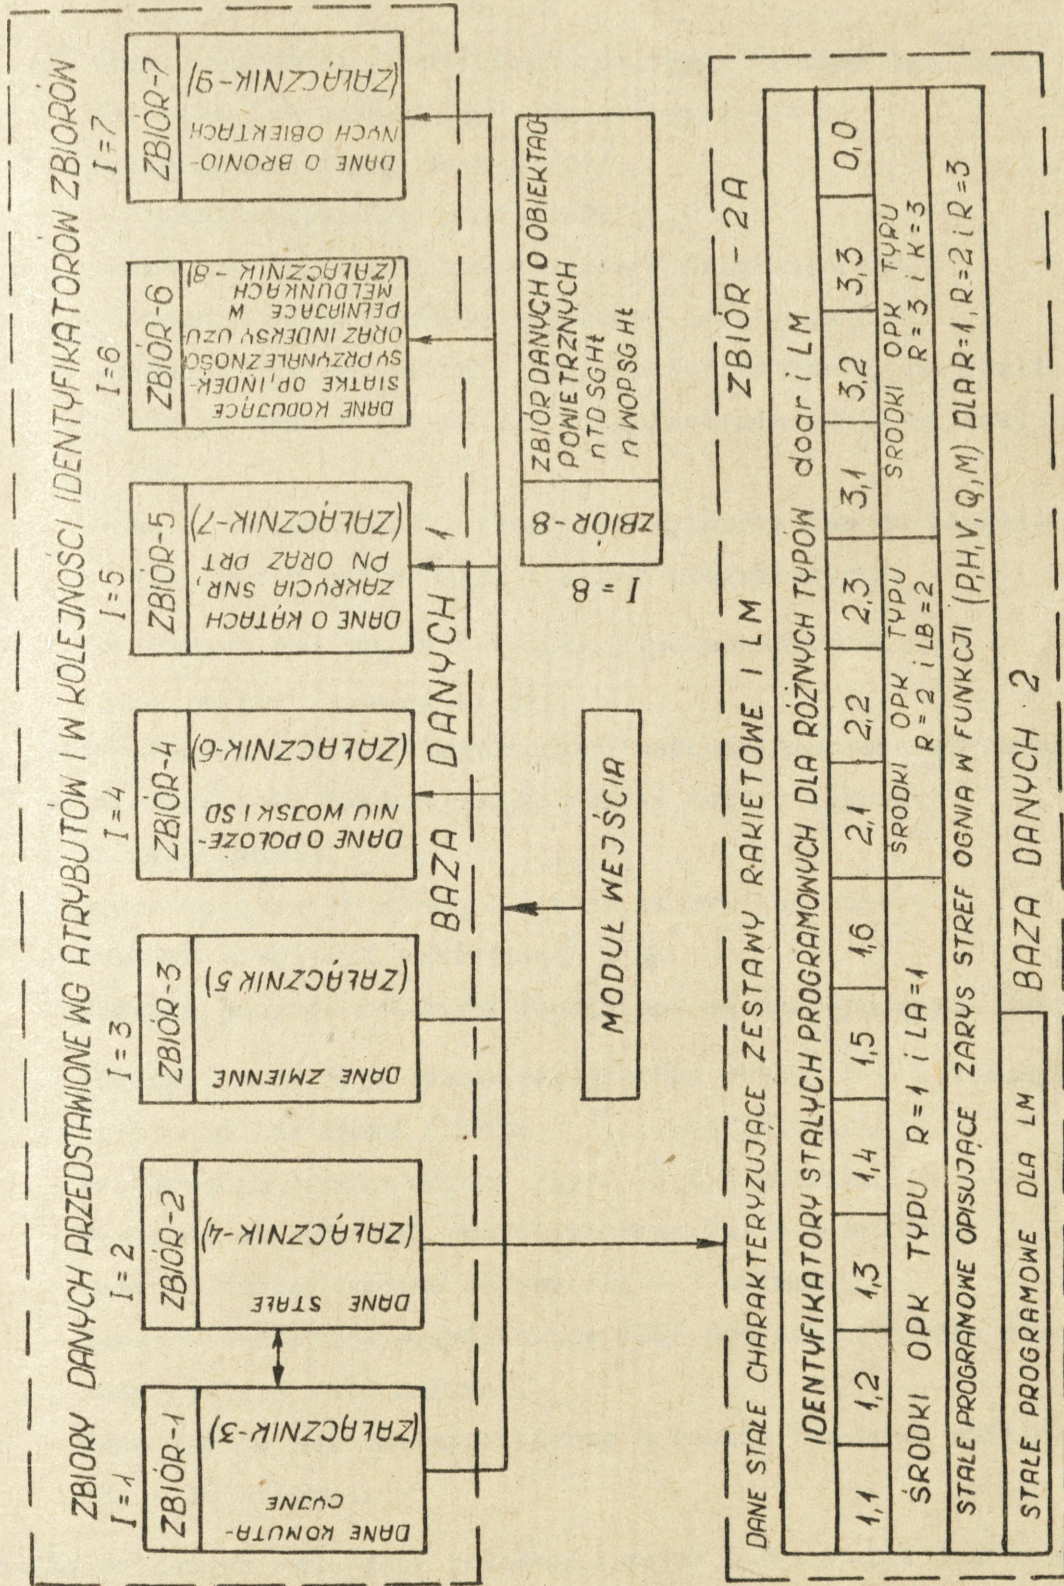 ZBIORY DANYCH PRZEDSTAWIONE WG ATRYBUTÓW I W KOLEJNOŚCI IDENTYFIKATORÓW ZBIORÓW
I=1
ZBIÓR-1
DANE KOMUTA-
CYJNE
(ZAŁĄCZNIK-3)
I=2
ZBIÓR-2
DANE STAŁE
(ZAŁĄCZNIK-4)
I=3
ZBIÓR-3
DANE ZMIENNE
(ZAŁĄCZNIK 5)
I=4
ZBIÓR-4
DANE O POŁOZE-
NIU WOJSK I SD
(ZAŁĄCZNIK-6)
I=5
ZBIÓR-5
DANE O KĄTACH
ZAKRYCIA SNR,
PN ORAZ PRT
(ZAŁĄCZNIK-7)
I=6
ZBIÓR-6
DANE KODUJĄCE
SIATKE OP, INDEK-
SY PRZYNALEŻNOŚC
ORAZ INDEKSY UZU
PEŁNIAJĄCE W
MELDUNKACH
(ZAŁĄCZNIK - 8)
I=7
ZBIÓR-7
DANE O BRONIO-
NYCH OBIEKTACH
(ZAŁĄCZNIK-9)
BAZA DANYCH 1
MODUŁ WEJŚCIA
I = 8
ZBIÓR-8
ZBIÓR DANYCH O OBIEKTACH
POWIETRZNYCH
nTD SGHt
n WOPSG Ht
ZBIÓR - 2A
DANE STAŁE CHARAKTERYZUJĄCE ZESTAWY RAKIETOWE I LM
IDENTYFIKATORY STAŁYCH PROGRAMOWYCH DLA RÓŻNYCH TYPÓW doar i LM
1,1 1,2 1,3 1,4 1,5 1,6 2,1 2,2 2,3 3,1 3,2 3,3 0,0
ŚRODKI OPK TYPU R=1 i LA=1
SRODKI OPK TYPU
R=2 i LB=2
SRODKI OPK TYPU
R=3 i K=3
STAŁE PROGRAMOWE OPISUJĄCE ZARYS STREF OGNIA W FUNKCJI (P,H,V,Q,M) DLA R=1, R=2 i R=3
STAŁE PROGRAMOWE DLA LM
BAZA DANYCH 2